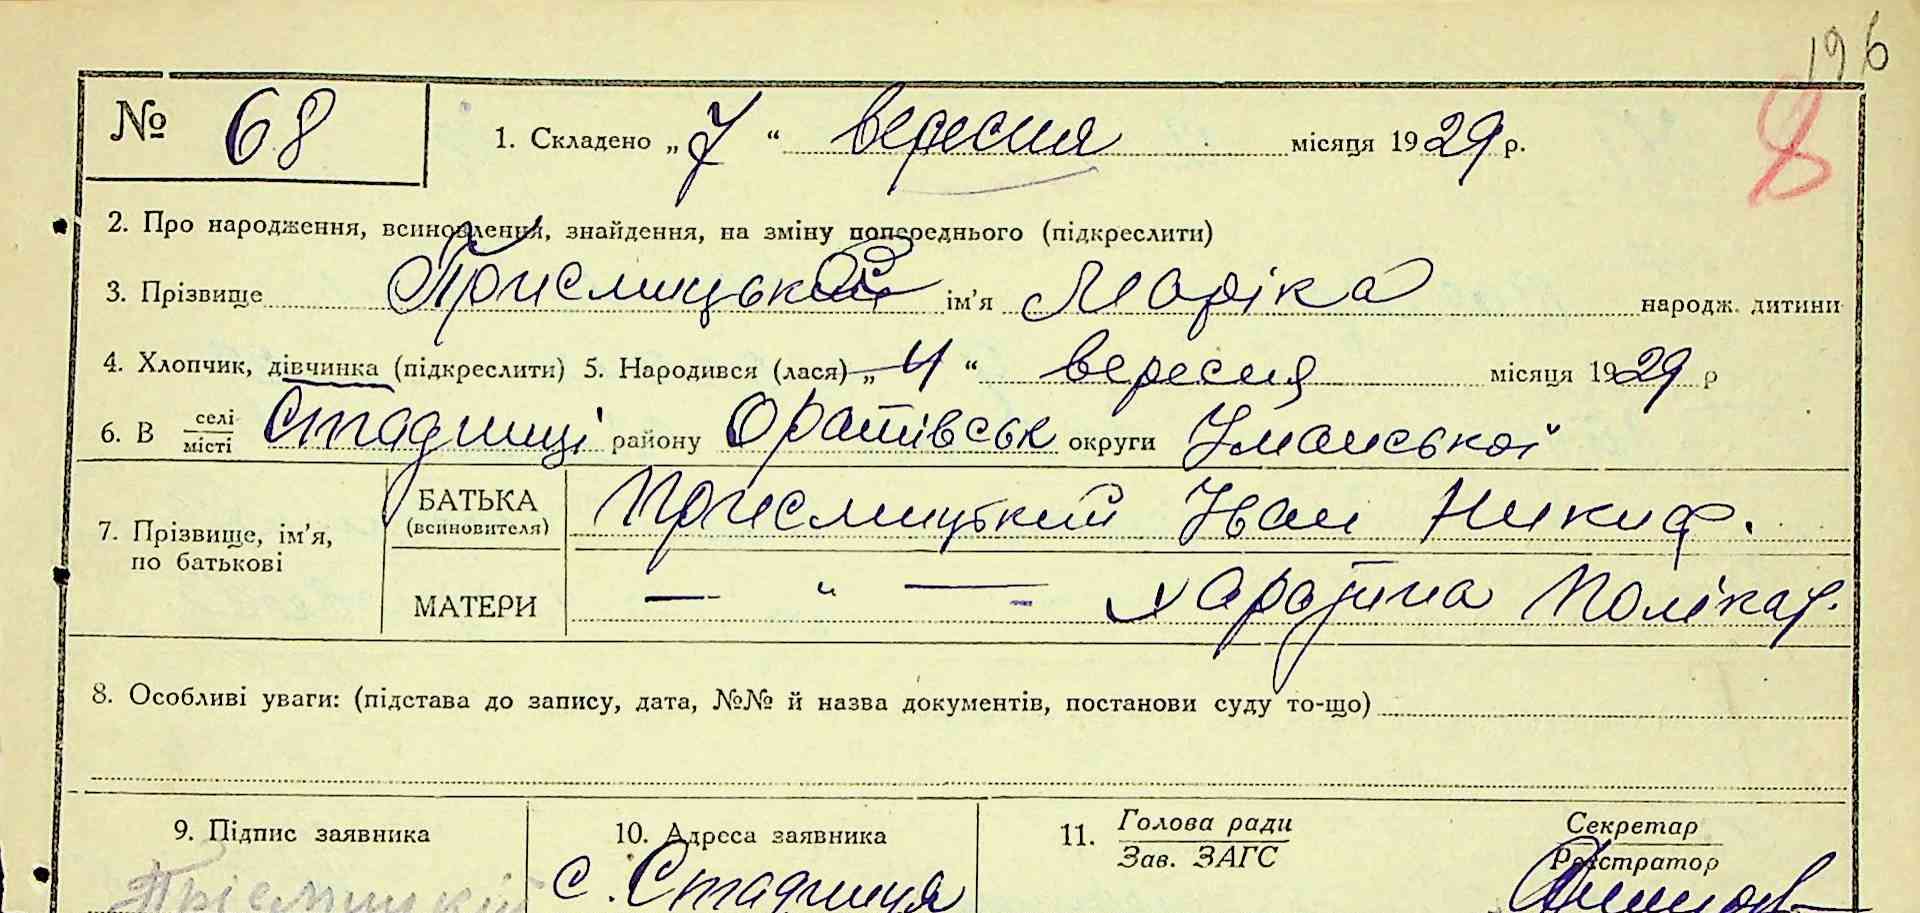 196
8
№ 68 1. Складено „7“ вересня місяця 1929 р.
2. Про народження, всиновлення, знайдення, на зміну попереднього (підкреслити)
3. Прізвище Приємицька ім’я Маріка народж. дитини
4. Хлопчик, дівчинка (підкреслити) 5. Народився (лася) „4“ вересня місяця 1929 р
6. В селі місті Стадниці району Оратівськ округи Уманської
7. Прізвище, ім’я, по батькові
БАТЬКА (всиновителя) Приємицький Іван Никиф.
МАТЕРИ — „ — Харатина Полікар.
8. Особливі уваги: (підстава до запису, дата, №№ й назва документів, постанови суду то-що)
9. Підпис заявника 10. Адреса заявника 11. Голова ради Зав. ЗАГС Секретар Реєстратор
Приємицкій с. Стадниця